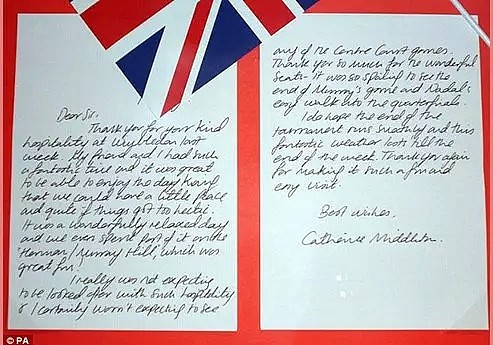 Dear Sir,
Thank you for your kind
hospitality at Wimbledon last
week. My friend and I had such
a fantastic time and it was great
to be able to enjoy the day knowing
that we could have a little peace
and quite if things got too hectic.
It was a wonderfully relaxed day
and we even spent part of it on the
'Henman/Murray Hill', which was
great fun.
I really was not expecting
to be looked after with such hospitality
& I certainly wasn't expecting to see
any of the Centre Court games.
Thank you so much for the wonderful
seats - it was so exciting to see the
end of Murray's game and Nadal's
easy walk into the quarterfinals.
I do hope the end of the
tournament runs smoothly and this
fantastic weather lasts till the
end of the week. Thank you again
for making it such a fun and
easy visit.
Best wishes,
Catherine Middleton.
© PA